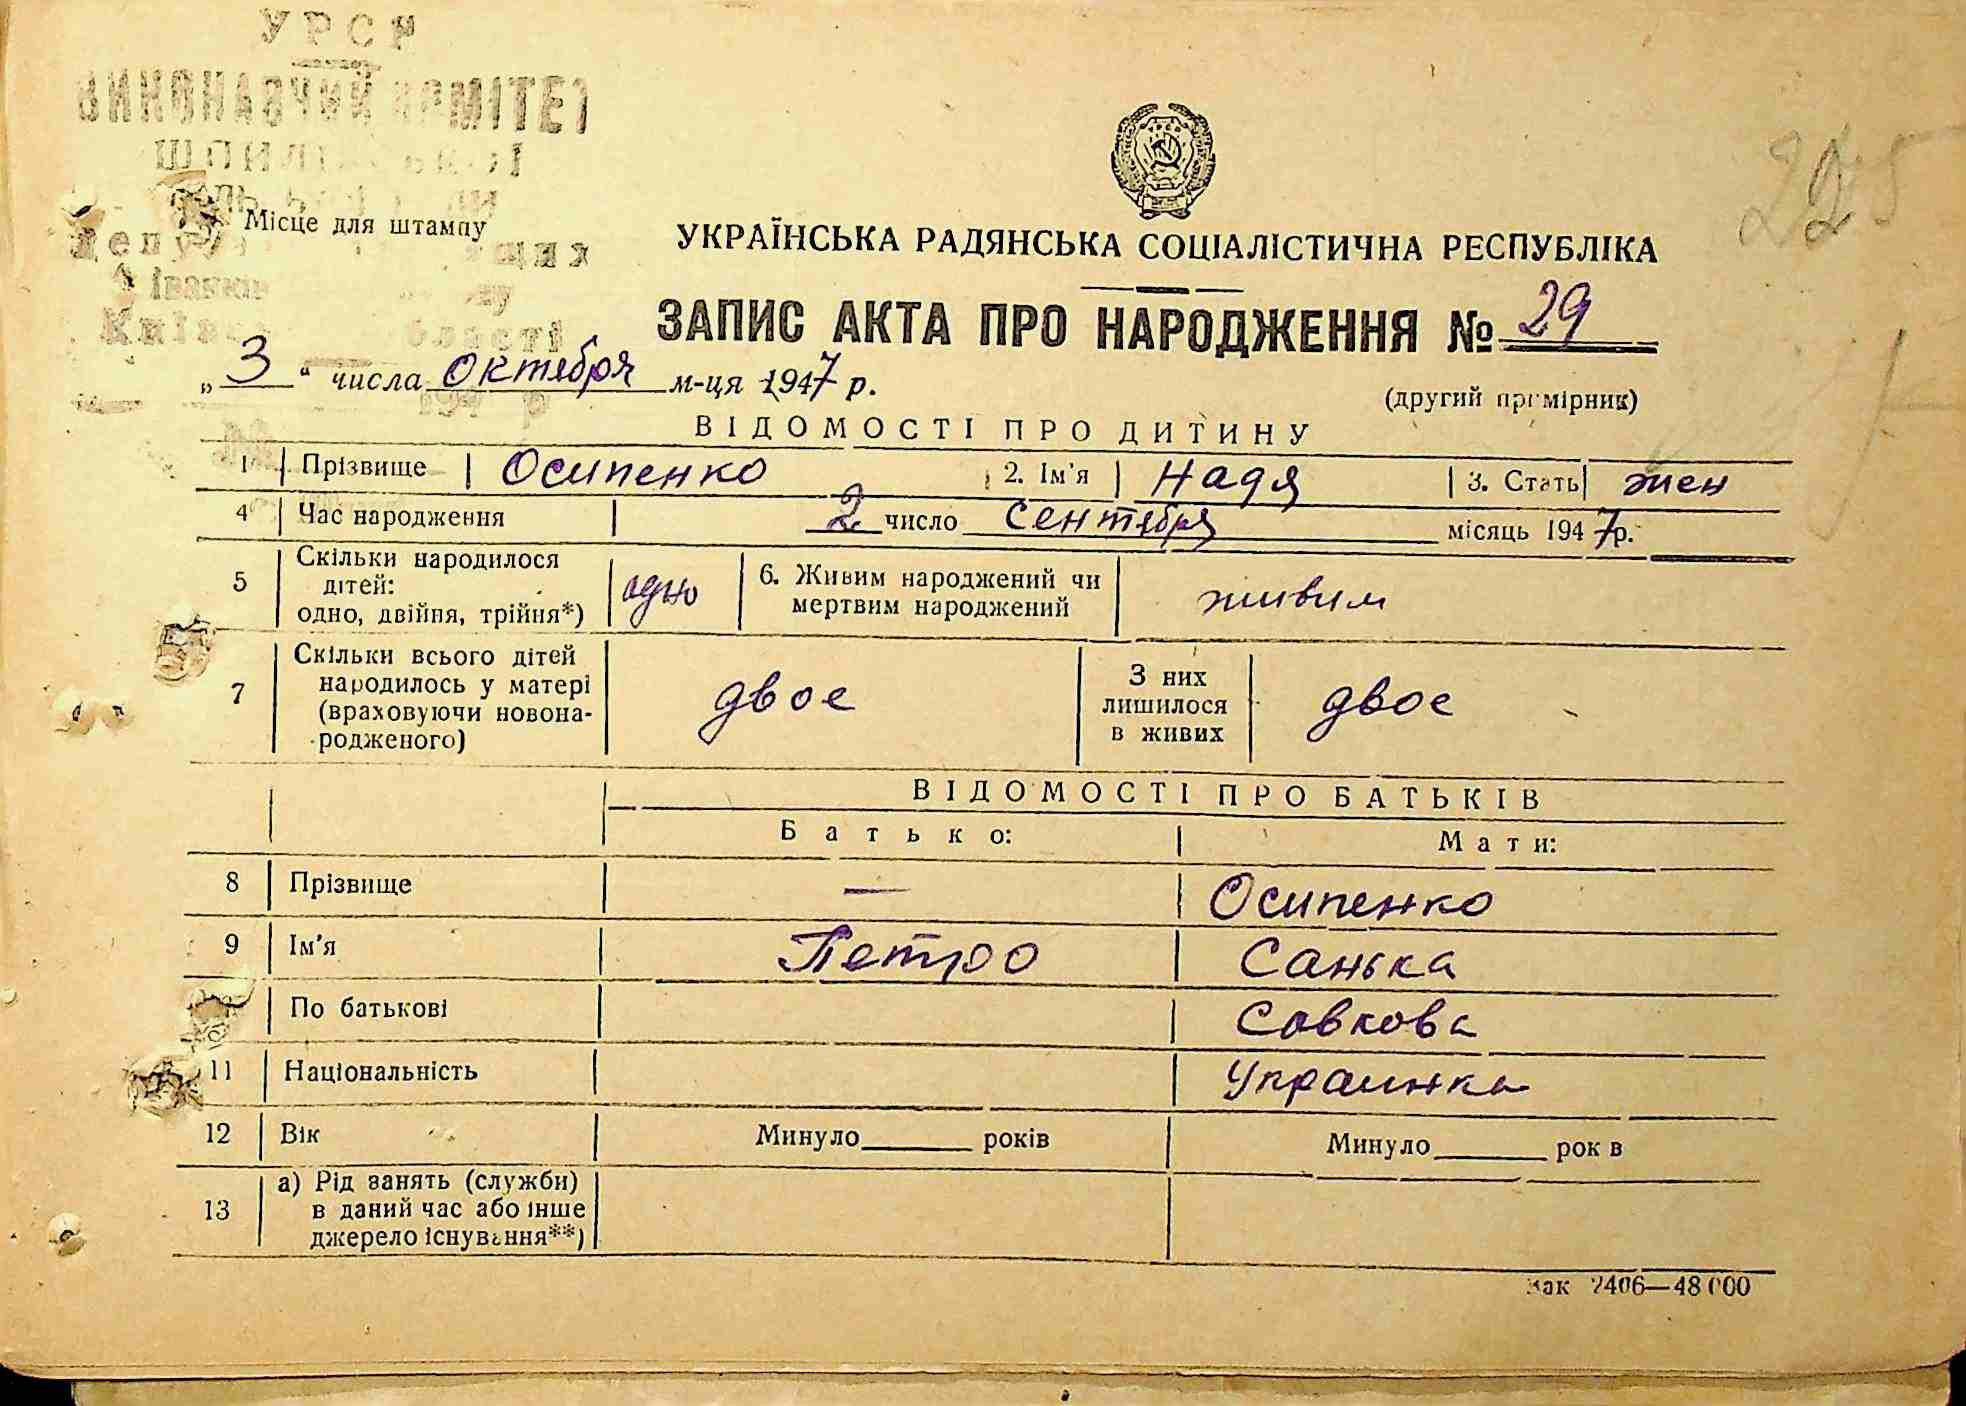 УРСР
ВИКОНАВЧИЙ КОМІТЕТ
Місце для штампу
області
225
УКРАЇНСЬКА РАДЯНСЬКА СОЦІАЛІСТИЧНА РЕСПУБЛІКА
ЗАПИС АКТА ПРО НАРОДЖЕННЯ № 29
„3“ числа октября м-ця 1947 р.
(другий примірник)
ВІДОМОСТІ ПРО ДИТИНУ
1 Прізвище Осипенко 2. Ім'я Надя 3. Стать жен
4 Час народження 2 число сентября місяць 1947 р.
5 Скільки народилося
дітей:
одно, двійня, трійня*) одно
6. Живим народжений чи
мертвим народжений живим
7 Скільки всього дітей
народилось у матері
(враховуючи новона-
родженого) двое
З них
лишилося
в живих двое
ВІДОМОСТІ ПРО БАТЬКІВ
Батько: Мати:
8 Прізвище — Осипенко
9 Ім'я Петро Санька
По батькові Савкова
11 Національність Украинка
12 Вік Минуло______ років Минуло______ рок в
13 а) Рід занять (служби)
в даний час або інше
джерело існування**)
Зак 2406—48000